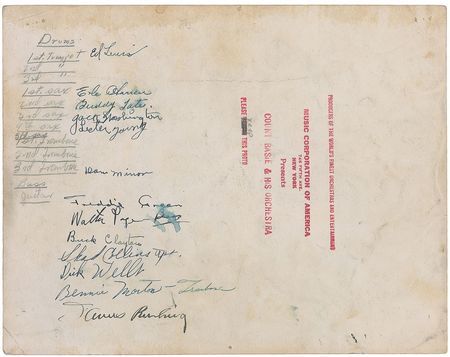 Drums
1st. Trumpet Ed Lewis
2nd "
3rd "
1st. sax Earle Warren
2nd sax Buddy Tate
3rd sax Jack Washington
4th sax Lester Young
1st. Trombone
2nd Trombone
3rd Trombone Dan Minor
Bass
Guitar
Freddie Green
Walter Page
Buck Clayton
Shad Collins
Dick Wells
Bennie Morton - Trombone
PLEASE THIS PHOTO
COUNT BASIE & HIS ORCHESTRA
Presents
NEW YORK
745 FIFTH AVE.
MUSIC CORPORATION OF AMERICA
PRODUCERS OF THE WORLD'S FINEST ORCHESTRAS AND ENTERTAINMENT